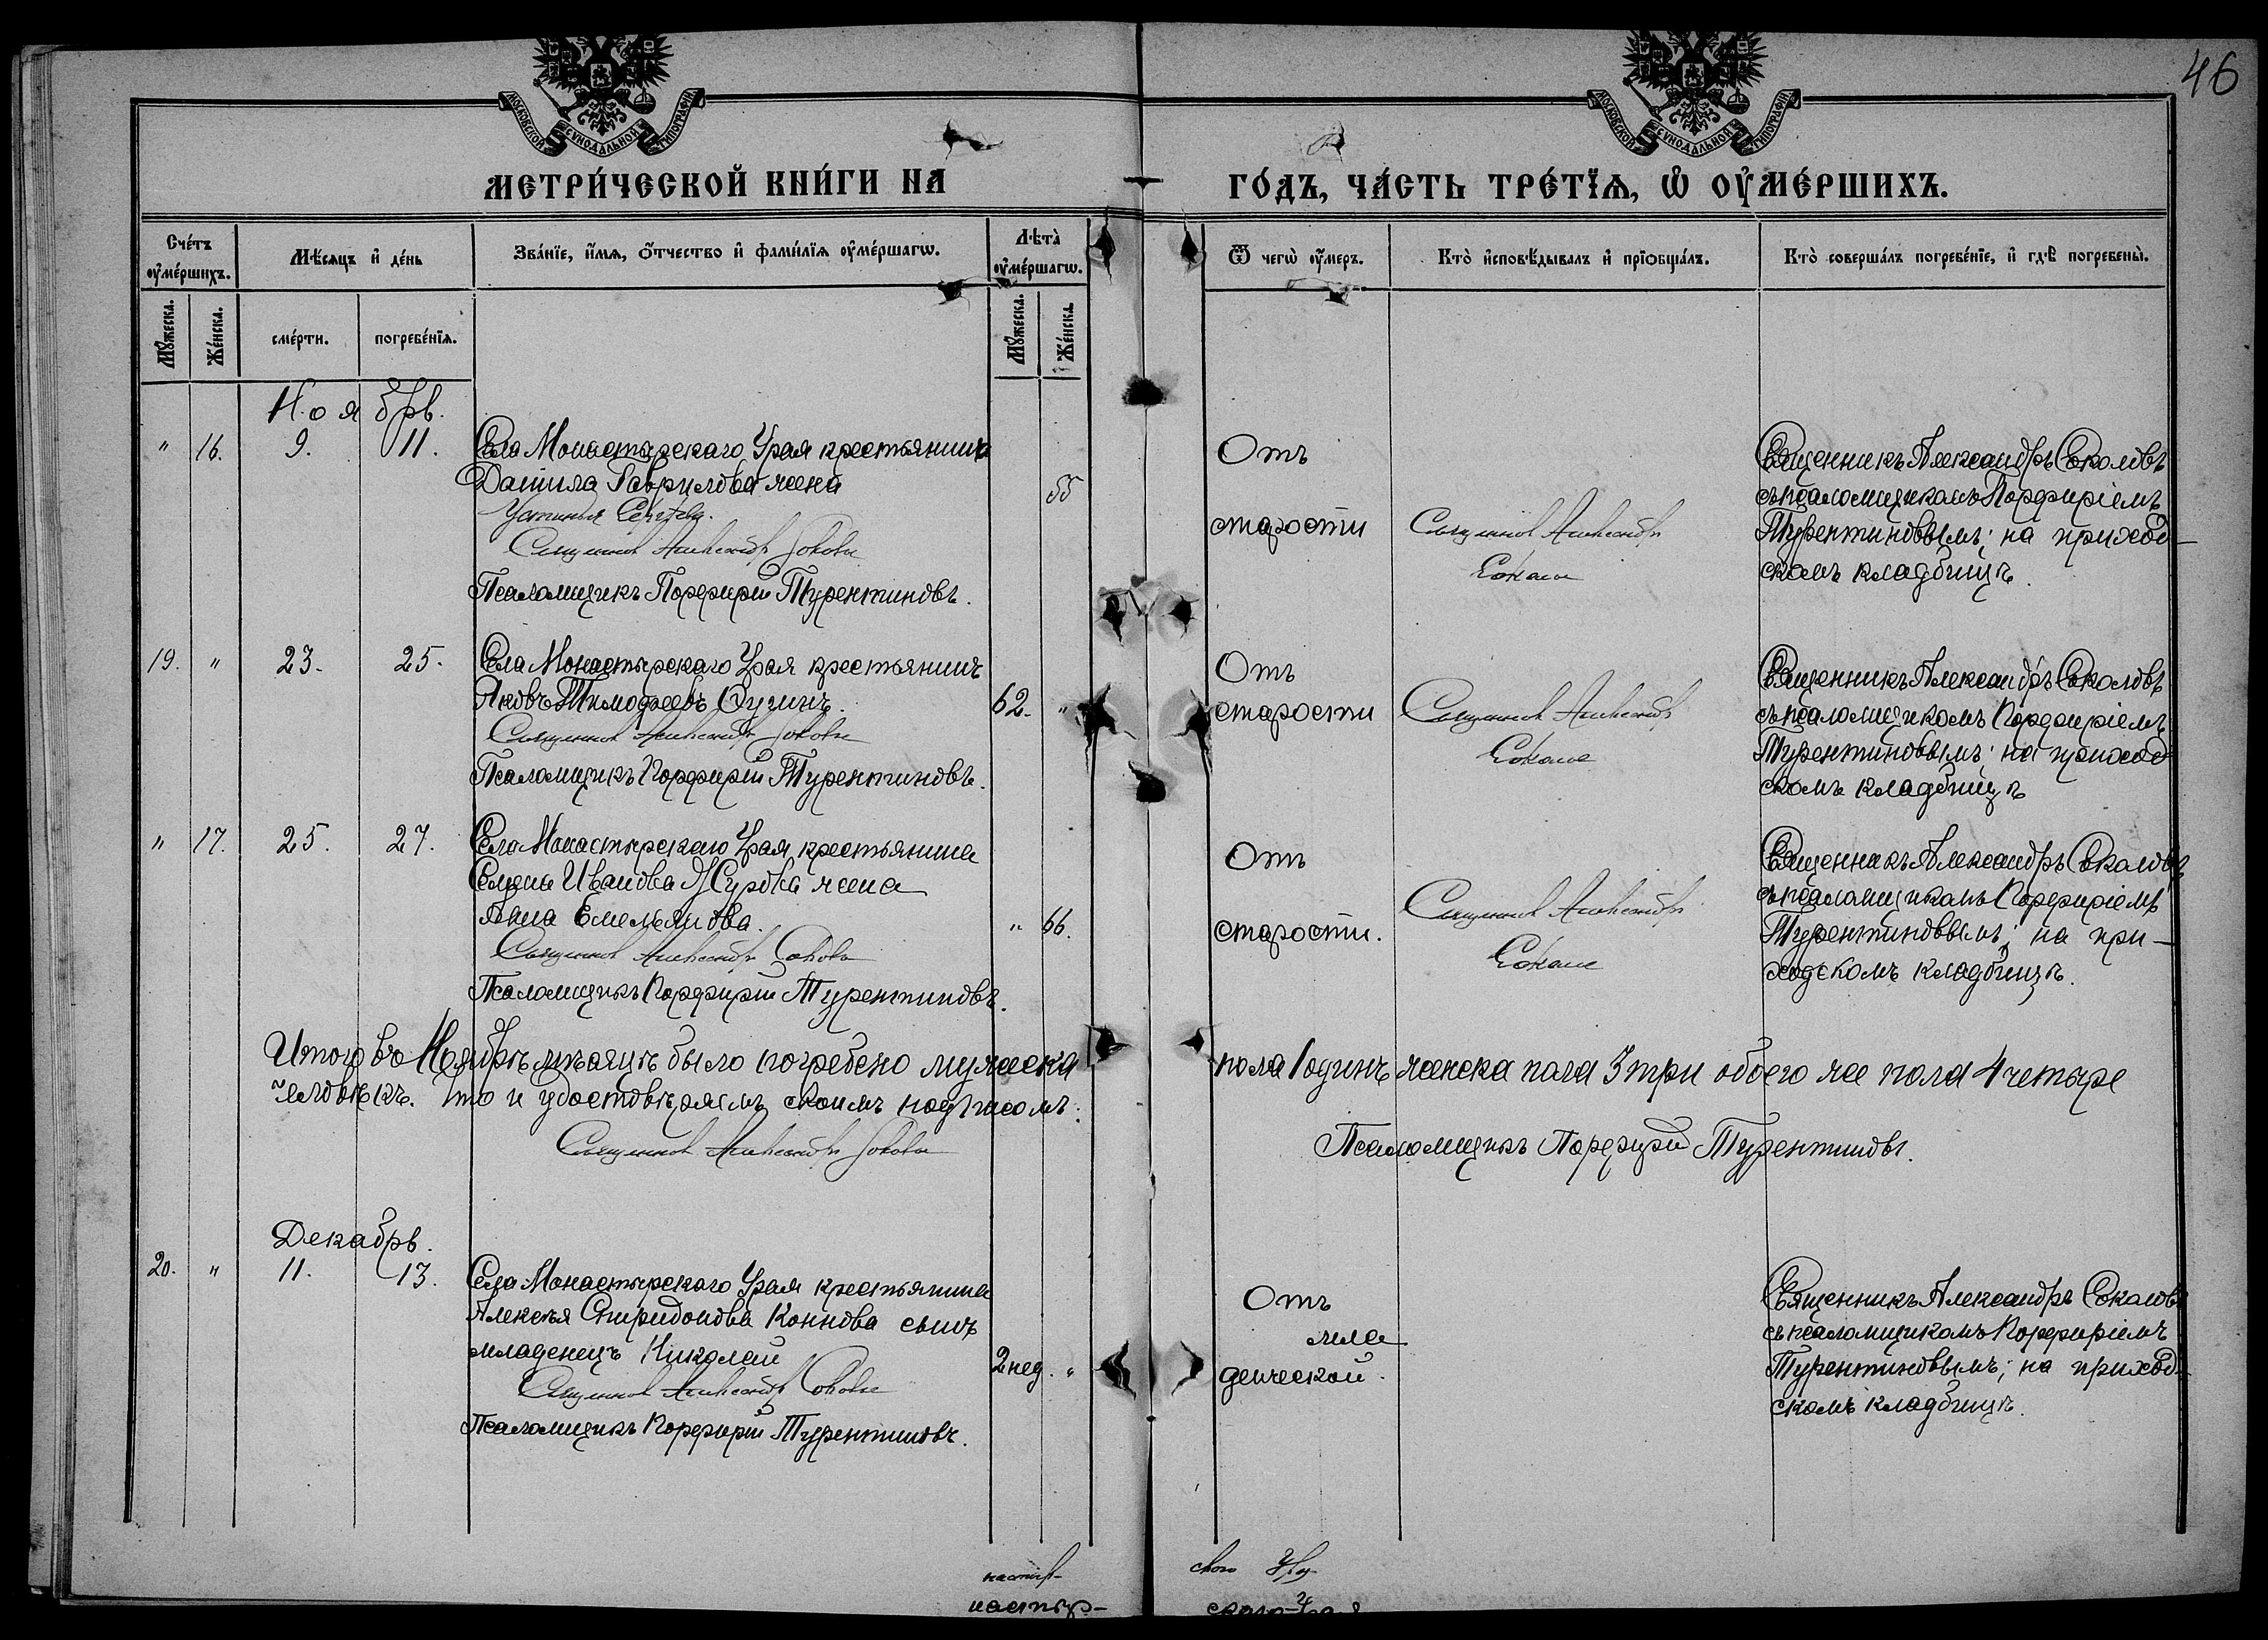 46
МОСКОВСКОЙ СѴНОДАЛЬНОЙ ТИПОГРАФІИ
МОСКОВСКОЙ СѴНОДАЛЬНОЙ ТИПОГРАФІИ
МЕТРИ́ЧЕСКОЙ КНИ́ГИ НА
ГО́ДЪ, ЧА́СТЬ ТРЕ́ТЇѦ, Ѽ ОУ҆МЕ́РШИХЪ.
Сче́тъ оу҆ме́ршихъ.
Мѣ́сяцъ и҆ де́нь
Зва́нїе, и҆́мѧ, ѻ҆́тчество и҆ фами́лїѧ оу҆ме́ршагѡ.
Лѣта̀ оу҆ме́ршагѡ.
Ѿ чегѡ̀ оу҆́меръ.
Кто̀ и҆сповѣ́дывалъ и҆ прїѻбща́лъ.
Кто̀ соверша́лъ погребе́нїе, и҆ гдѣ̀ погребены̀.
Мꙋ́жеска.
Же́нска.
сме́рти.
погребе́нїѧ.
Мꙋ́жеска.
Же́нска.
Ноябрь.
" 16. 9. 11. Села Монастырскаго Урая крестьянина
Даниила Гаврилова жена
55
Устинья Сергѣева.
Священникъ Александръ Соколовъ
Псаломщикъ Порфирій Турентиновъ.
Отъ
старости
Священникъ Александръ
Соколовъ
Священникъ Александръ Соколовъ
съ псаломщикомъ Порфиріемъ
Турентиновымъ; на приход-
скомъ кладбищѣ.
19. " 23. 25. Села Монастырскаго Урая крестьянинъ
Яковъ Тимофеевъ 62. "
Священникъ Александръ Соколовъ
Псаломщикъ Порфирій Турентиновъ.
Отъ
старости
Священникъ Александръ
Соколовъ
Священникъ Александръ Соколовъ
съ псаломщикомъ Порфиріемъ
Турентиновымъ; на приход-
скомъ кладбищѣ
" 17. 25. 27. Села Монастырскаго Урая крестьянина
Иванова жена
Анна Емельянова. " 66.
Священникъ Александръ Соколовъ
Псаломщикъ Порфирій Турентиновъ.
Отъ
старости.
Священникъ Александръ
Соколовъ
Священникъ Александръ Соколовъ
съ псаломщикомъ Порфиріемъ
Турентиновымъ; на при-
ходскомъ кладбищѣ.
Итого въ Ноябрѣ мѣсяцѣ было погребено мужеска пола 1 одинъ женска пола 3 три обоего же пола 4 четыре
человѣкъ. Что и удостовѣряемъ своимъ подписомъ:
Священникъ Александръ Соколовъ
Псаломщикъ Порфирій Турентиновъ.
Декабрь.
20. " 11. 13. Села Монастырскаго Урая крестьянина
Алексѣя Спиридонова Коннова сынъ
младенецъ Николай 2 нед. "
Священникъ Александръ Соколовъ
Псаломщикъ Порфирій Турентиновъ.
Отъ
мла
денческой.
Священникъ Александръ Соколовъ
съ псаломщикомъ Порфиріемъ
Турентиновымъ; на приход-
скомъ кладбищѣ.
настыр-
скаго Ура
настыр-
скаго Урая